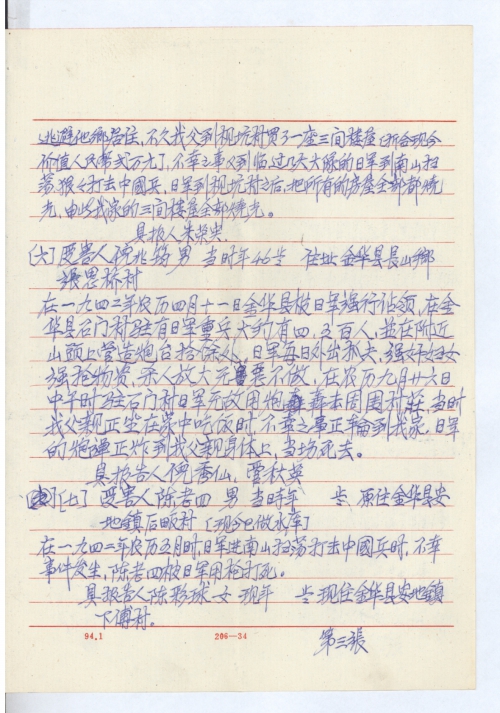 逃避他鄉居住,不久我父到枧坑村買了一座三间楼屋(折合现今
价值人民幣弍万元),不幸之事又到临过几天大隊的日軍到南山扫
荡 打击中國兵,日軍到枧坑村之后,把所有的房屋全部都燒
光,由此我家的三间楼屋全部燒光。
具报人朱荣忠
[六] 受害人倪兆 男 当时年46岁 住址金华县長山鄉
思桥村
在一九四二年农历四月十一日金华县被日軍强行佔领,在金
华县石门村驻有日軍重兵大约有四、五百人,並在附近
山頭上营造炮台拾餘处,日軍每日外出 夫,强奸妇女
强抢物资,杀人放火无 不做,在农历九月廿六日
中午时驻石门村日軍无故用炮轟本周围村庄,当时
我父親正坐在家中吃饭时,不幸之事正輪到我家,日軍
的炮弹正炸到我父親身体上,当场死去。
具报告人倪香仙,曹秋英
[七] 受害人陈老四 男 当时年 岁 原住金华县安
地镇后畈村 [现今巳做水库]
在一九四二年农历五月时,日軍进南山扫荡打击中國兵时,不幸
事件发生,陈老四被日軍用枪打死。
具报告人陈彩球 女 现年 岁 现住金华县安地镇
下傅村。
94.1 206—34
第三張